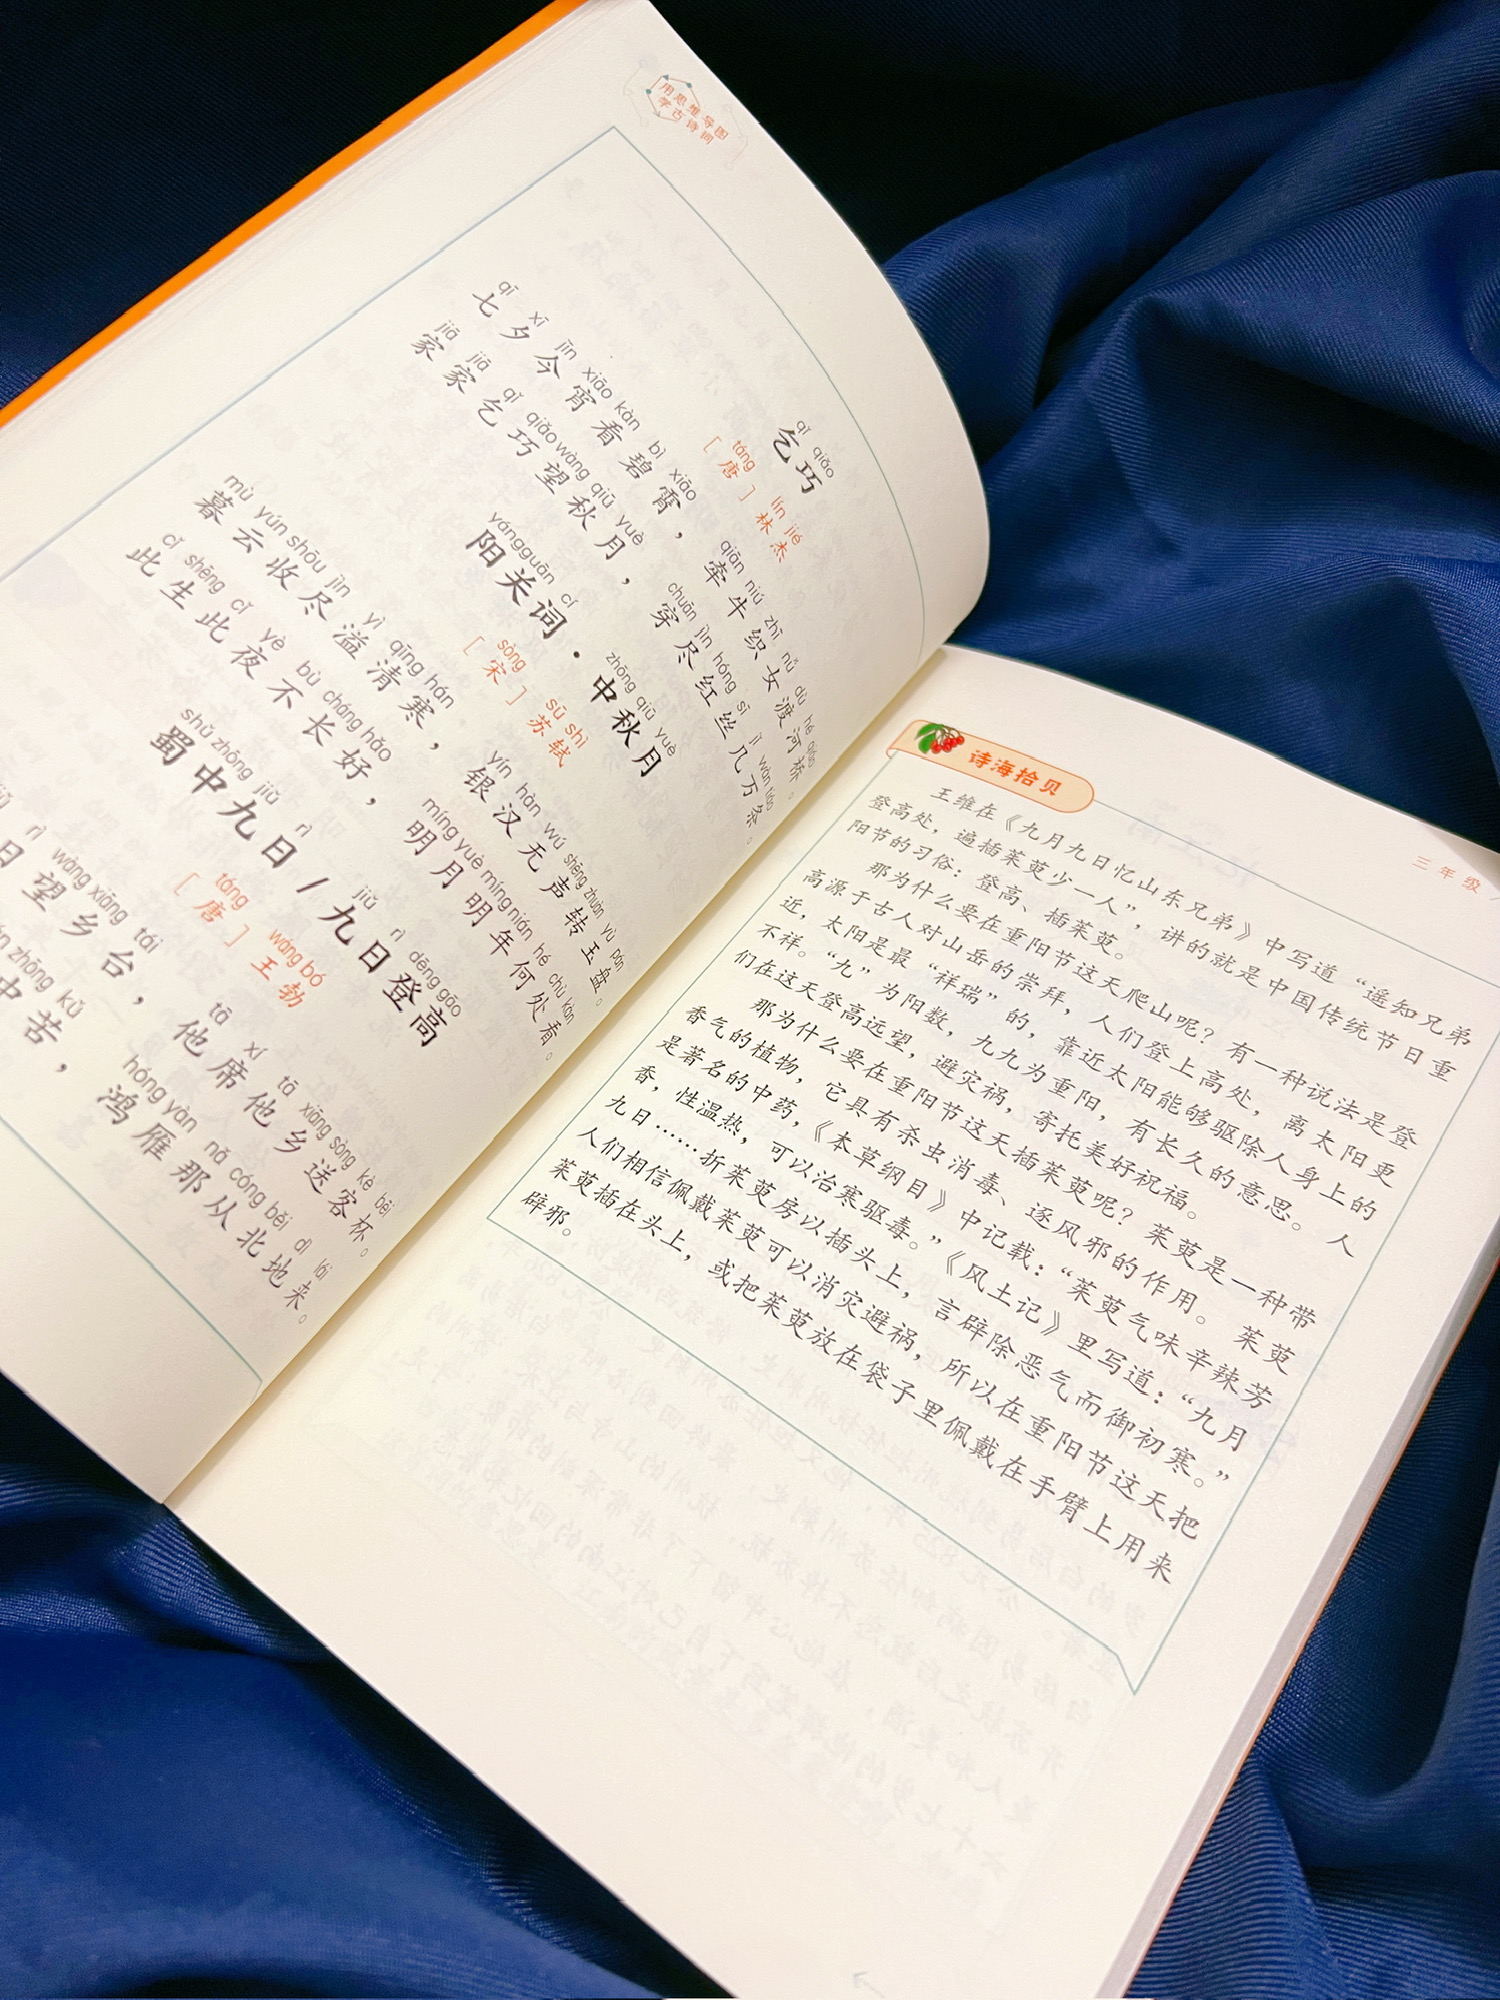 用思维导图
学古诗词
qǐ qiǎo
乞巧
táng lín jié
[唐] 林杰
qī xī jīn xiāo kàn bì xiāo qiān niú zhī nǚ dù hé qiáo
七夕今宵看碧霄，牵牛织女渡河桥。
jiā jiā qǐ qiǎo wàng qiū yuè chuān jìn hóng sī jǐ wàn tiáo
家家乞巧望秋月，穿尽红丝几万条。
yángguān cí zhōng qiū yuè
阳关词·中秋月
sòng sū shì
[宋] 苏轼
mù yún shōu jìn yì qīng hán yín hàn wú shēng zhuàn yù pán
暮云收尽溢清寒，银汉无声转玉盘。
cǐ shēng cǐ yè bù cháng hǎo míng yuè míng nián hé chù kàn
此生此夜不长好，明月明年何处看。
shǔ zhōng jiǔ rì jiǔ rì dēng gāo
蜀中九日/九日登高
táng wáng bó
[唐] 王勃
rì wàng xiāng tái tā xí tā xiāng sòng kè bēi
日望乡台，他席他乡送客杯。
zhōng kǔ hóng yàn nǎ cóng běi dì lái
中苦，鸿雁那从北地来。
三年级
诗海拾贝
王维在《九月九日忆山东兄弟》中写道“遥知兄弟
登高处，遍插茱萸少一人”，讲的就是中国传统节日重
阳节的习俗：登高、插茱萸。
那为什么要在重阳节这天爬山呢？有一种说法是登
高源于古人对山岳的崇拜，人们登上高处，离太阳更
近，太阳是最“祥瑞”的，靠近太阳能够驱除人身上的
不祥。“九”为阳数，九九为重阳，有长久的意思。人
们在这天登高远望，避灾祸，寄托美好祝福。
那为什么要在重阳节这天插茱萸呢？茱萸是一种带
香气的植物，它具有杀虫消毒、逐风邪的作用。茱萸
是著名的中药，《本草纲目》中记载：“茱萸气味辛辣芳
香，性温热，可以治寒驱毒。”《风土记》里写道：“九月
九日……折茱萸房以插头上，言辟除恶气而御初寒。”
人们相信佩戴茱萸可以消灾避祸，所以在重阳节这天把
茱萸插在头上，或把茱萸放在袋子里佩戴在手臂上用来
辟邪。